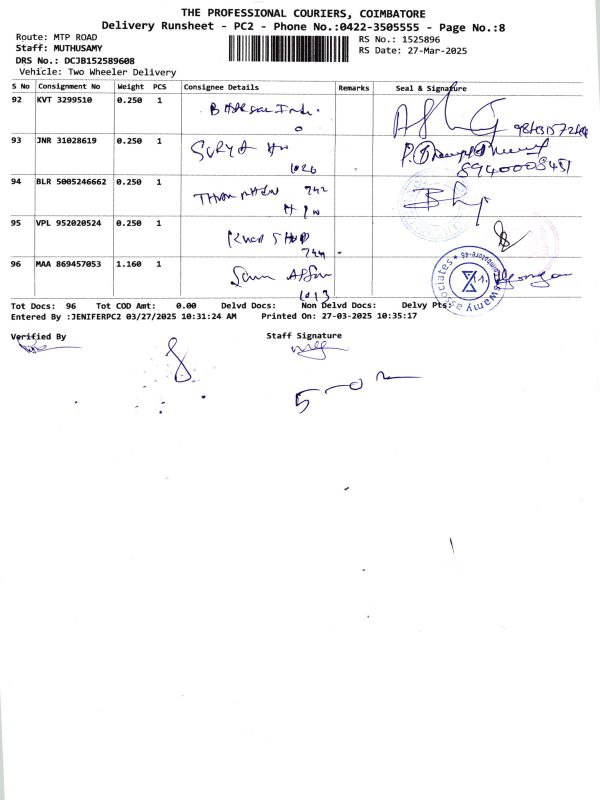 THE PROFESSIONAL COURIERS, COIMBATORE
Delivery Runsheet - PC2 - Phone No.:0422-3505555 - Page No.:8
Route: MTP ROAD
RS No.: 1525896
Staff: MUTHUSAMY
RS Date: 27-Mar-2025
DRS No.: DCJB152589608
Vehicle: Two Wheeler Delivery
S No Consignment No Weight PCS Consignee Details Remarks Seal & Signature
92 KVT 3299510 0.250 1
93 JNR 31028619 0.250 1 SURYA
8940008451
1026
94 BLR 5005246662 0.250 1 742
95 VPL 952020524 0.250 1
744
96 MAA 869457053 1.160 1
1013
Tot Docs: 96 Tot COD Amt: 0.00 Delvd Docs: Non Delvd Docs: Delvy Pts:
Entered By :JENIFERPC2 03/27/2025 10:31:24 AM Printed On: 27-03-2025 10:35:17
Verified By Staff Signature